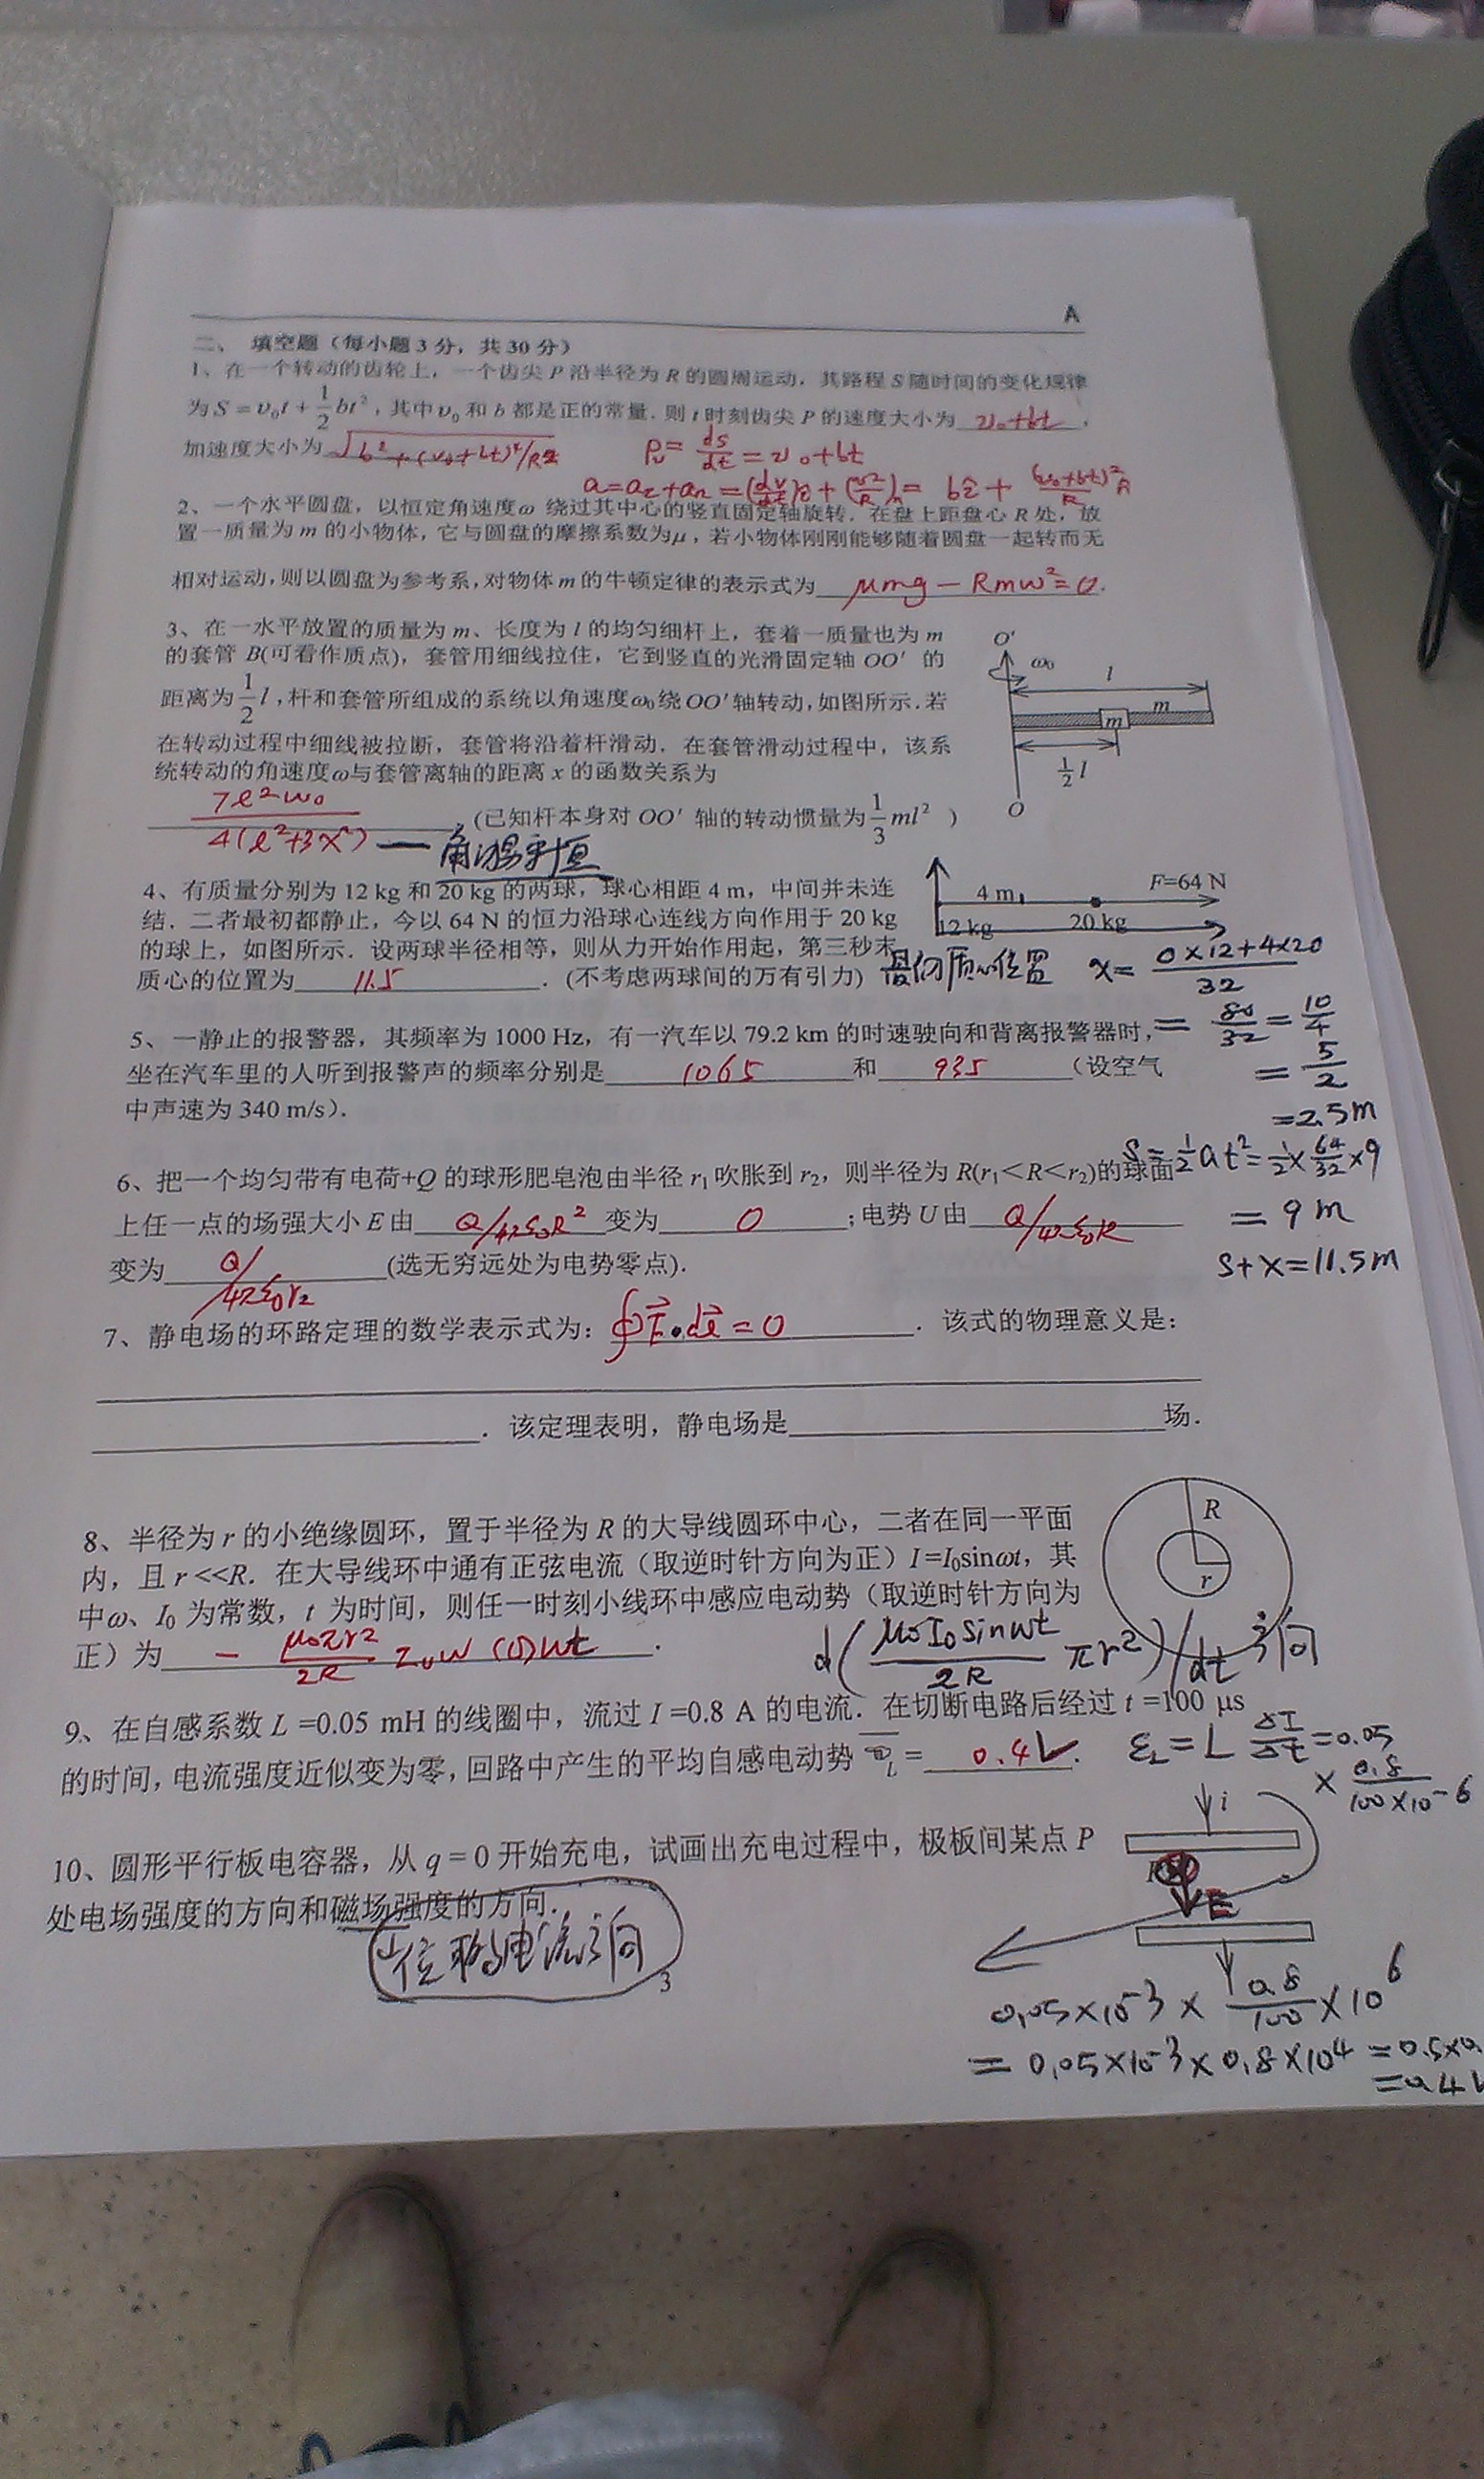 A
二、 填空题（每小题 3 分，共 30 分）
1、在一个转动的齿轮上，一个齿尖 P 沿半径为 R 的圆周运动，其路程 S 随时间的变化规律
为 S = v₀t + 1/2 bt²，其中 v₀ 和 b 都是正的常量．则 t 时刻齿尖 P 的速度大小为 v₀+bt ，
加速度大小为 √b²+(v₀+bt)⁴/R² v = ds/dt = v₀+bt
a = aτ+an = (dv/dt)τ + (v²/R)n = bτ̂ + (v₀+bt)²/R n̂
2、一个水平圆盘，以恒定角速度ω 绕过其中心的竖直固定轴旋转．在盘上距盘心 R 处，放
置一质量为 m 的小物体，它与圆盘的摩擦系数为μ，若小物体刚刚能够随着圆盘一起转而无
相对运动，则以圆盘为参考系，对物体 m 的牛顿定律的表示式为 μmg − Rmω²=0 .
3、在一水平放置的质量为 m、长度为 l 的均匀细杆上，套着一质量也为 m
的套管 B(可看作质点)，套管用细线拉住，它到竖直的光滑固定轴 OO′ 的
距离为 1/2 l，杆和套管所组成的系统以角速度ω₀绕 OO′ 轴转动，如图所示．若
在转动过程中细线被拉断，套管将沿着杆滑动．在套管滑动过程中，该系
统转动的角速度ω与套管离轴的距离 x 的函数关系为
7l²ω₀ / 4(l²+3x²) ．(已知杆本身对 OO′ 轴的转动惯量为 1/3 ml² )
— 角动量守恒
O′
ω₀
l
m
m
1/2 l
O
4、有质量分别为 12 kg 和 20 kg 的两球，球心相距 4 m，中间并未连
结．二者最初都静止，今以 64 N 的恒力沿球心连线方向作用于 20 kg
的球上，如图所示．设两球半径相等，则从力开始作用起，第三秒末
质心的位置为 11.5 ．(不考虑两球间的万有引力)
4 m
F=64 N
12 kg
20 kg
最初质心位置 x = 0×12+4×20 / 32
= 80/32 = 10/4
= 5/2
=2.5m
5、一静止的报警器，其频率为 1000 Hz，有一汽车以 79.2 km 的时速驶向和背离报警器时，
坐在汽车里的人听到报警声的频率分别是 1065 和 935 （设空气
中声速为 340 m/s）.
S=½at²=½×64/32×9
= 9m
S+x=11.5m
6、把一个均匀带有电荷+Q 的球形肥皂泡由半径 r₁ 吹胀到 r₂，则半径为 R(r₁＜R＜r₂)的球面
上任一点的场强大小 E 由 Q/4πε₀R² 变为 0 ；电势 U 由 Q/4πε₀R
变为 Q/4πε₀r₂ (选无穷远处为电势零点).
7、静电场的环路定理的数学表示式为： ∮E⃗•dl⃗ = 0 ．该式的物理意义是：
．该定理表明，静电场是 场．
8、半径为 r 的小绝缘圆环，置于半径为 R 的大导线圆环中心，二者在同一平面
内，且 r <<R．在大导线环中通有正弦电流（取逆时针方向为正）I=I₀sinωt，其
中ω、I₀ 为常数，t 为时间，则任一时刻小线环中感应电动势（取逆时针方向为
正）为 − μ₀πr²/2R I₀ω cosωt ．
R
r
d(μ₀I₀sinωt/2R πr²)/dt 方向
9、在自感系数 L =0.05 mH 的线圈中，流过 I =0.8 A 的电流．在切断电路后经过 t =100 μs
的时间，电流强度近似变为零，回路中产生的平均自感电动势 = 0.4V .
ε_L = L ΔI/Δt =0.05
× 0.8/100×10⁻⁶
10、圆形平行板电容器，从 q = 0 开始充电，试画出充电过程中，极板间某点 P
处电场强度的方向和磁场强度的方向．
位移电流方向
i
E
3
0.05×10⁻³ × 0.8/100 ×10⁶
= 0.05×10⁻³×0.8×10⁴ =0.5×0.
=0.4V